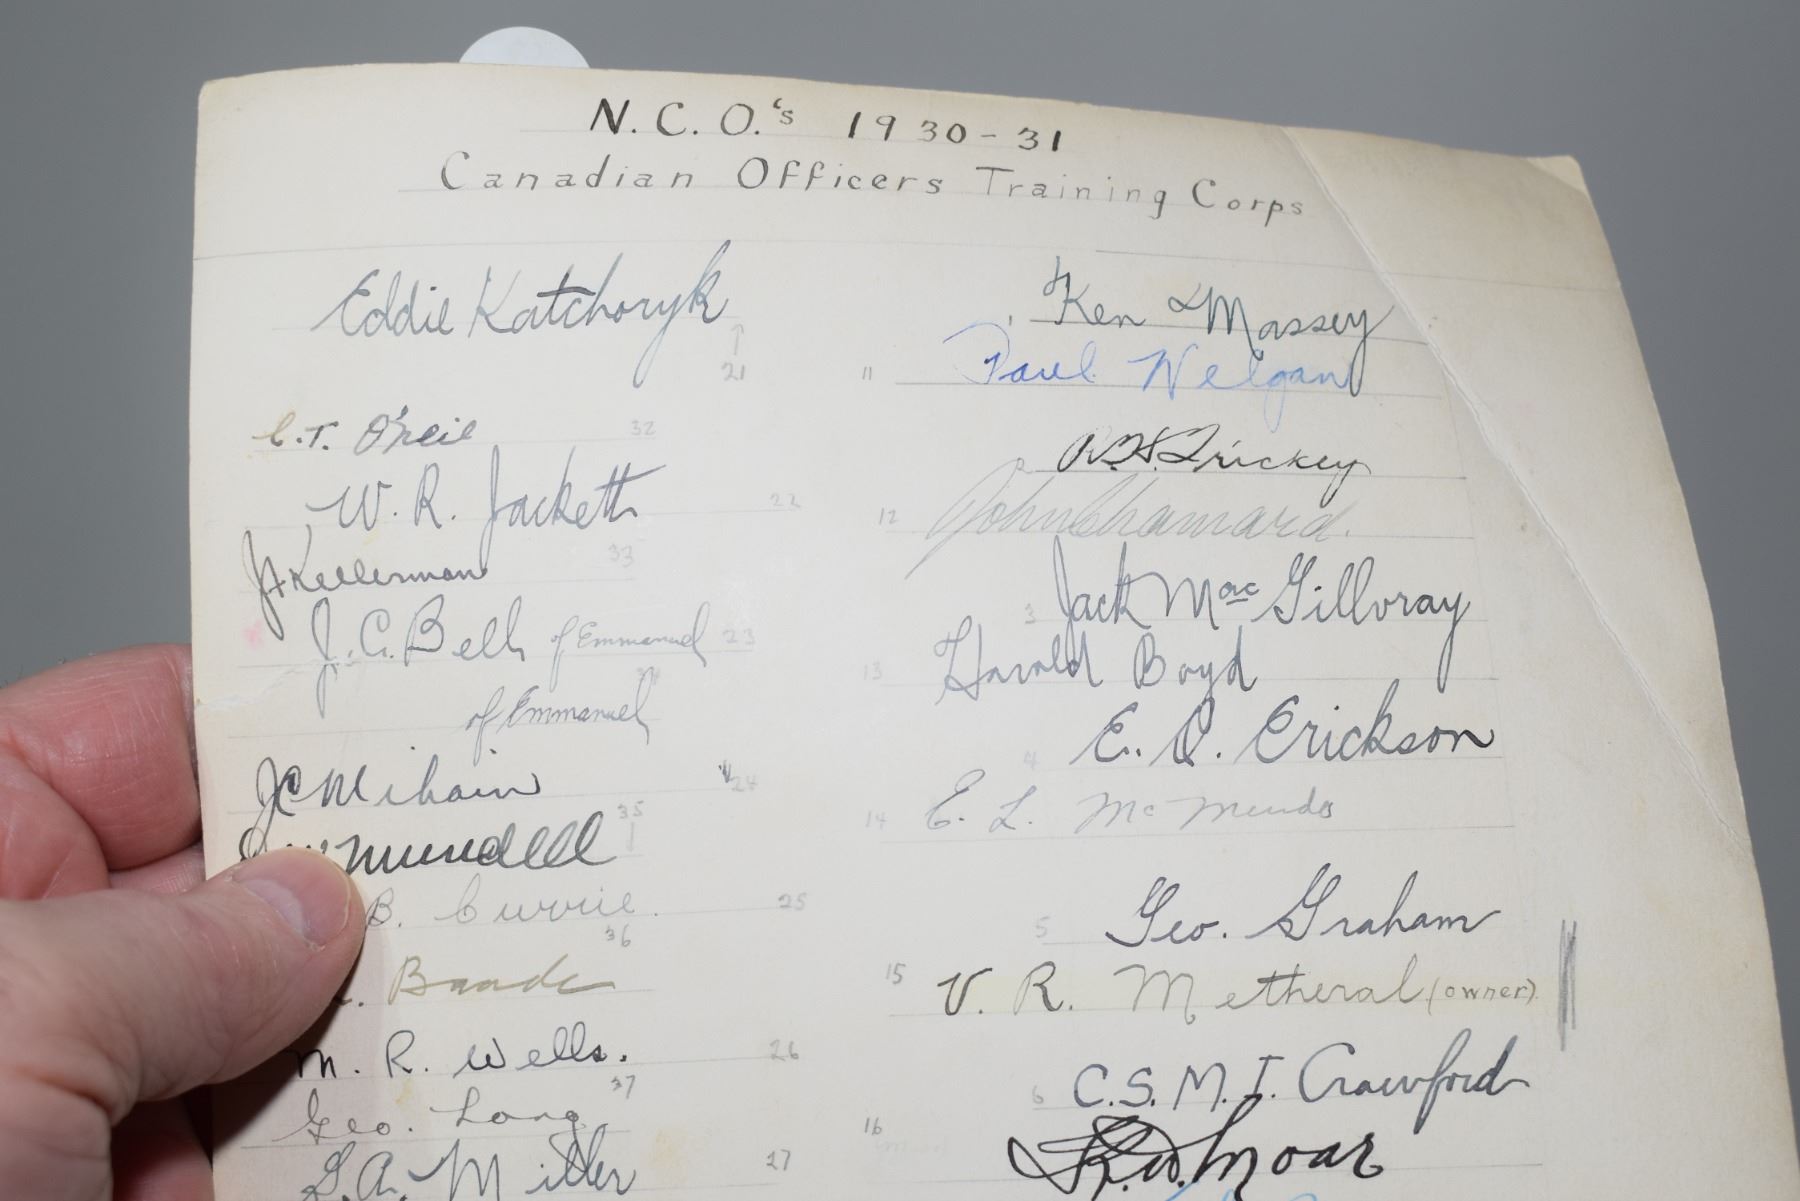 N.C.O.'s 1930-31
Canadian Officers Training Corps
Eddie Katchoryk
21
C.T. O'Neil 32
W. R. Jackett 22
J Kellerman 33
J. C. Bell of Emmanuel 23
of Emmanuel
J C 24
Mundell 35
B. Currie. 25
Baade 36
M. R. Wells. 26
Geo. Long 37
S. A. Miller 27
Ken Massey
11 Paul Welgan
Trickey
12 John Chamard.
3 Jack MacGillvray
13 Harold Boyd
4 E. Erickson
14 E. L.
5 Geo. Graham
15 V. R. Metheral (owner)
6 C.S.M. I. Crawford
16 Moar